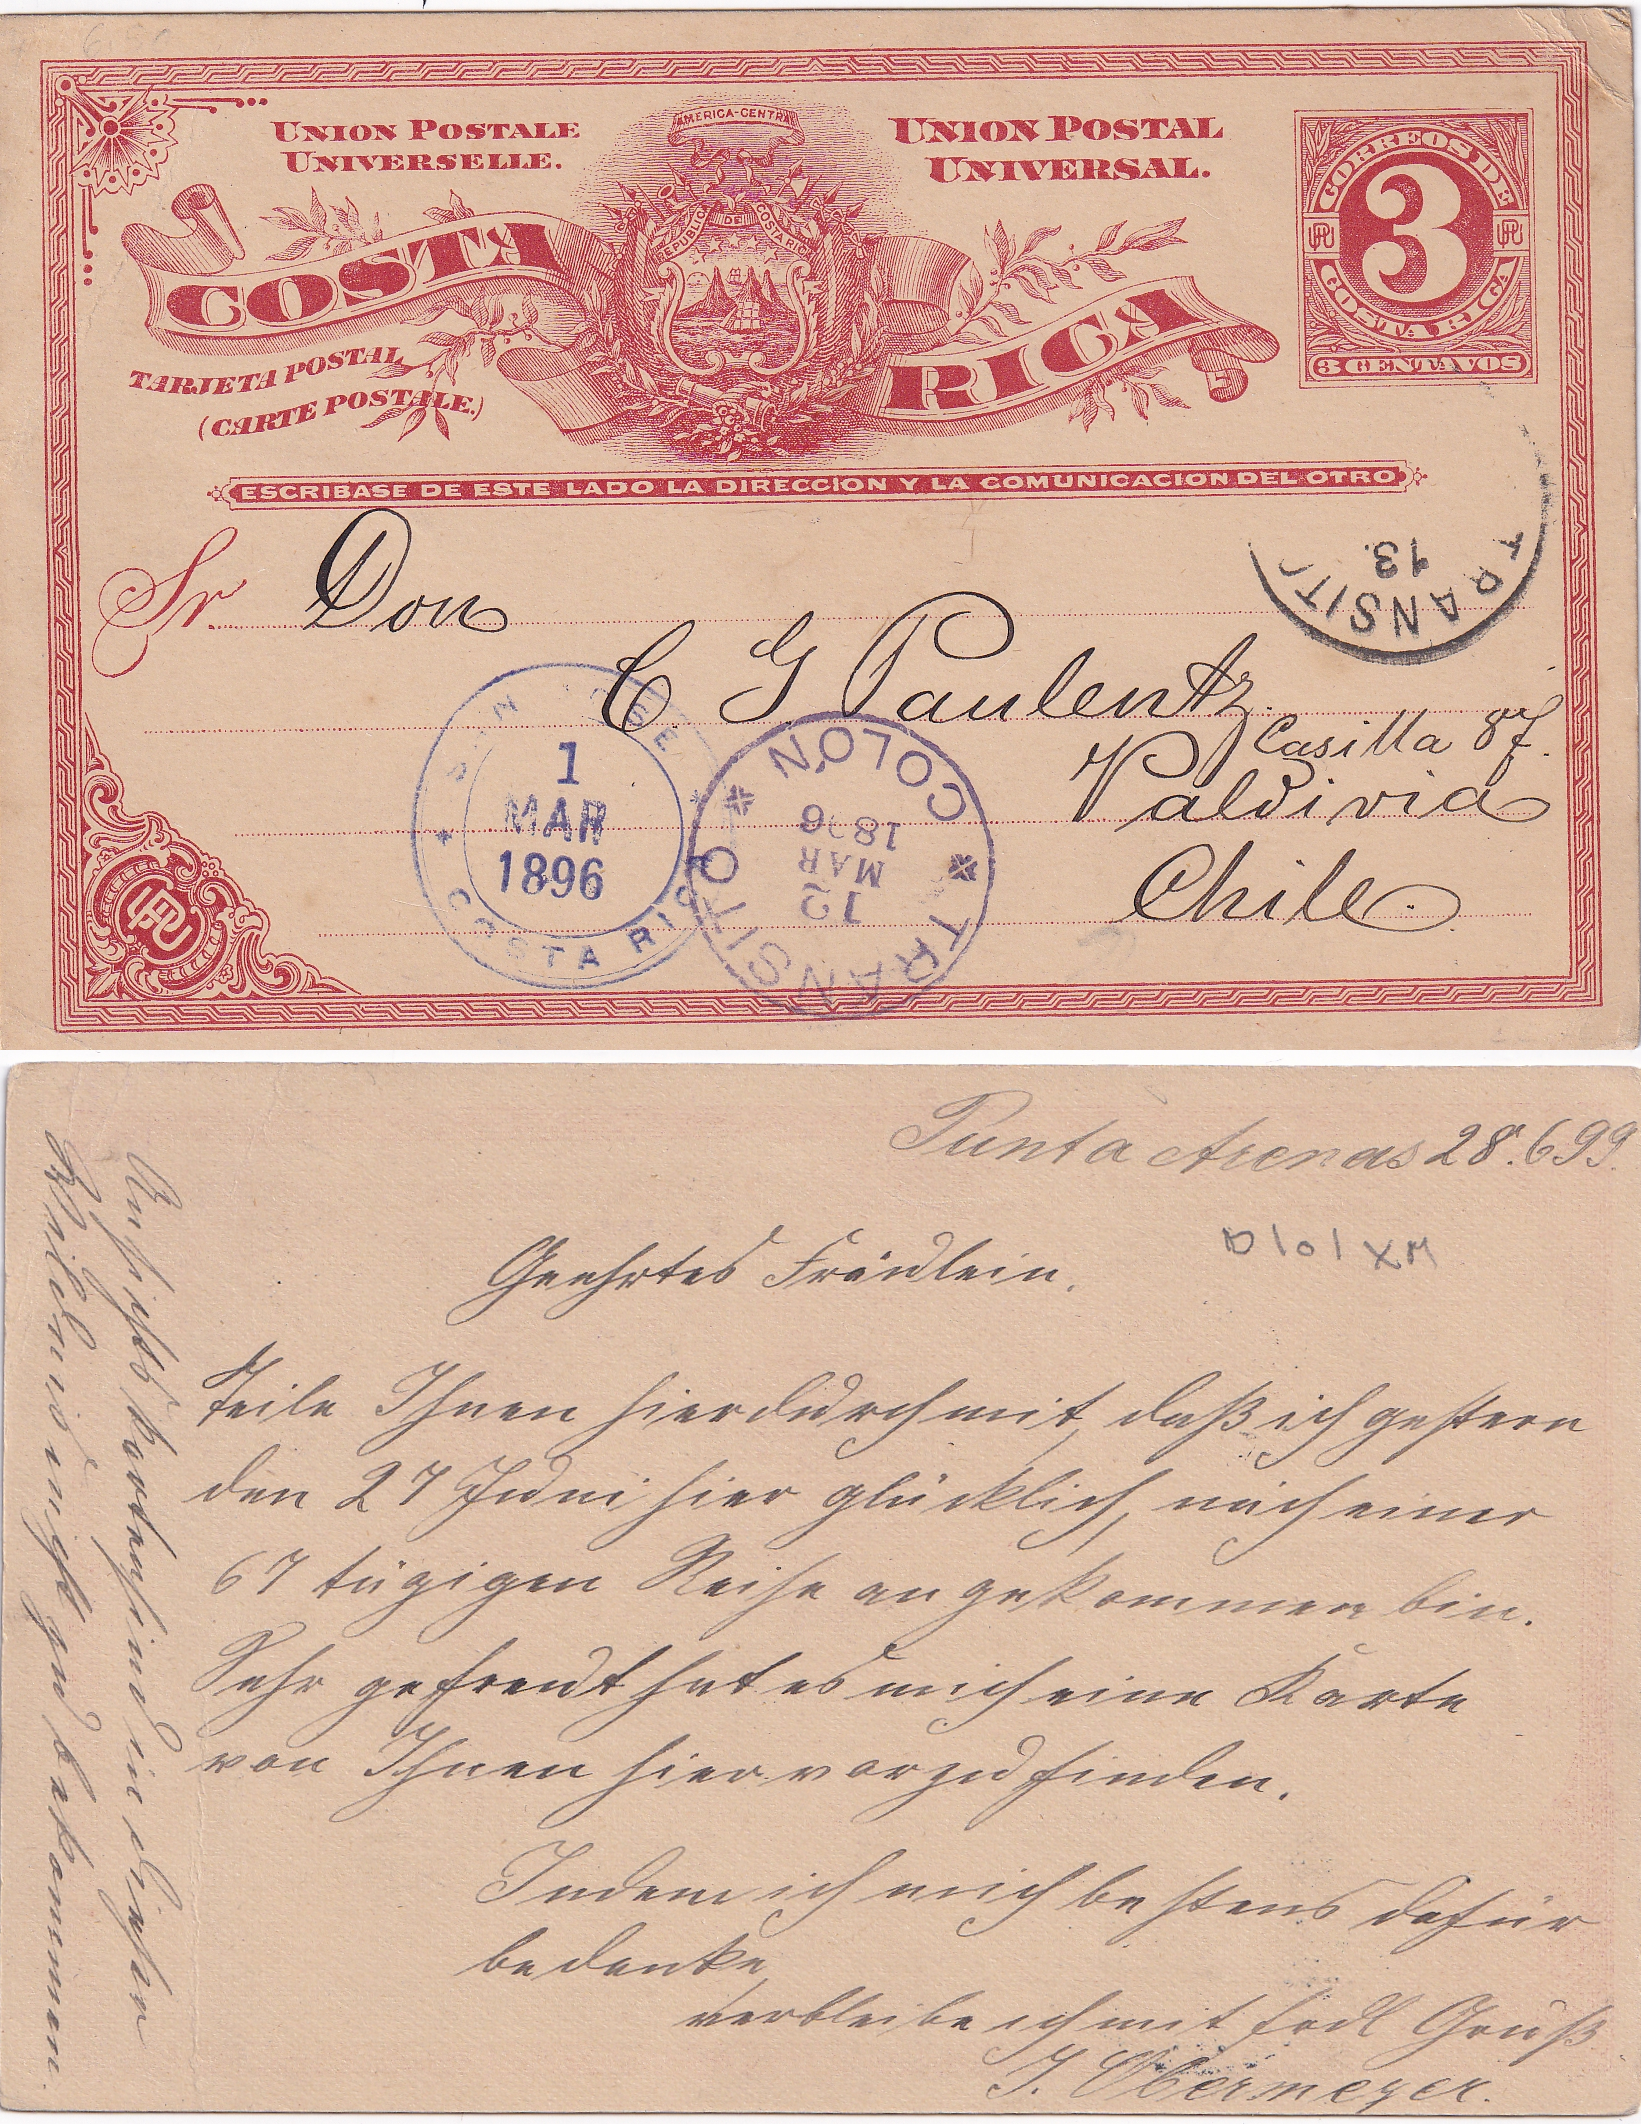 UNION POSTALE
UNIVERSELLE.
AMERICA-CENTRAL
UNION POSTAL
UNIVERSAL.
CORREOS DE
3
COSTA RICA
3 CENTAVOS
REPUBLICA DE COSTA RICA
COSTA RICA
TARJETA POSTAL
(CARTE POSTALE.)
ESCRIBASE DE ESTE LADO LA DIRECCION Y LA COMUNICACION DEL OTRO
TRANSIT
13
Sr Don
C G Paulentz.
Casilla 87.
Valdivia
Chile.
SAN JOSE
1
MAR
1896
COSTA RICA
COLON
TRANSITO
12
MAR
1896
UPU
Punta Arenas 28.6 99.
Geehrtes Fräulein.
Teile Ihnen hierdurch mit, daß ich gestern
den 27 Juni hier glücklich, nach einer
67 tägigen Reise angekommen bin.
Sehr gefreut hat es mich eine Karte
von Ihnen hier vorzufinden.
Indem ich mich bestens dafür
bedanke,
verbleibe ich mit frdl Gruß
J. Obermeyer.
Ansichtskarten sind in dieser
Wildnis nicht zu bekommen.